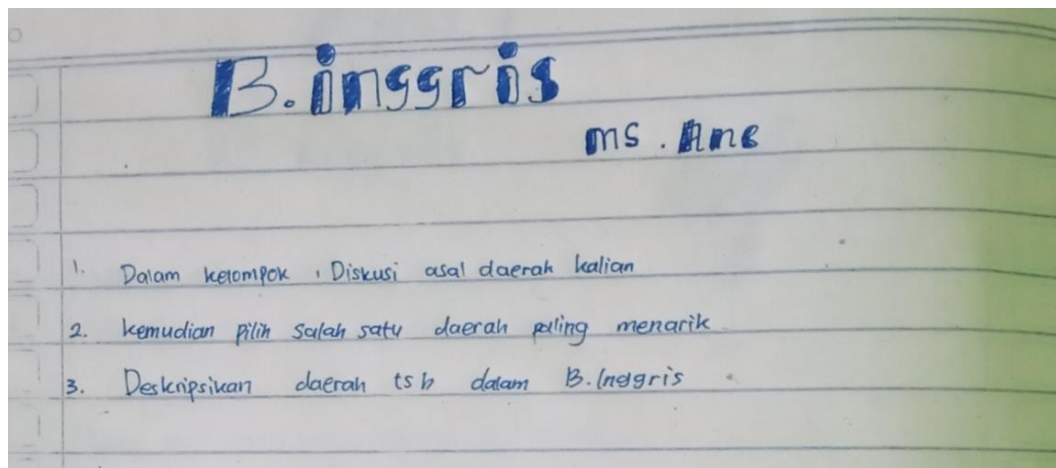 B. inggris
ms. Ane
1. Dalam kelompok, Diskusi asal daerah kalian
2. kemudian Pilih salah satu daerah paling menarik
3. Deskripsikan daerah tsb dalam B. Inggris